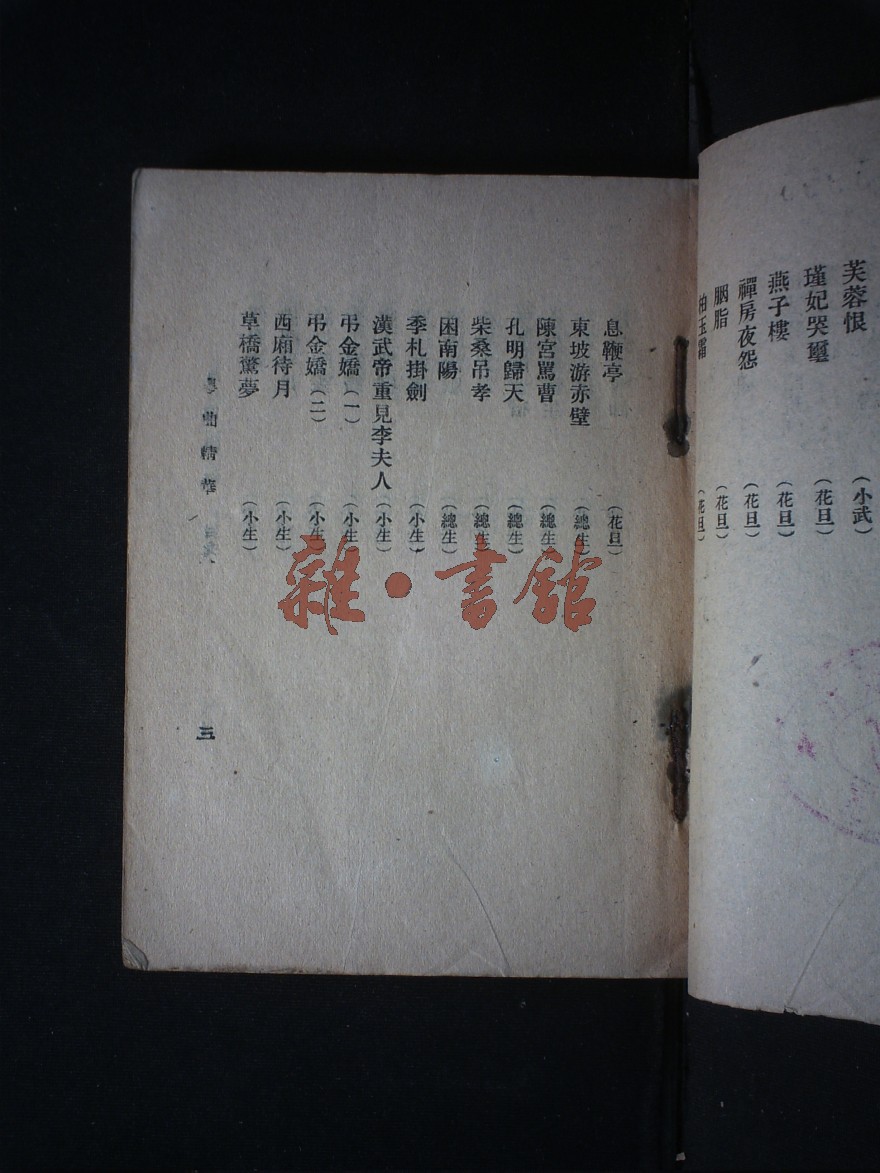 芙蓉恨 (小武)
瑾妃哭璽 (花旦)
燕子樓 (花旦)
禪房夜怨 (花旦)
胭脂 (花旦)
柏玉霜 (花旦)
息鞭亭 (花旦)
東坡游赤壁 (總生)
陳宮罵曹 (總生)
孔明歸天 (總生)
柴桑吊孝 (總生)
困南陽 (總生)
季札掛劍 (小生)
漢武帝重見李夫人 (小生)
弔金嬌(一) (小生)
弔金嬌(二) (小生)
西廂待月 (小生)
草橋驚夢 (小生)
粵曲精華
三
雜·書館